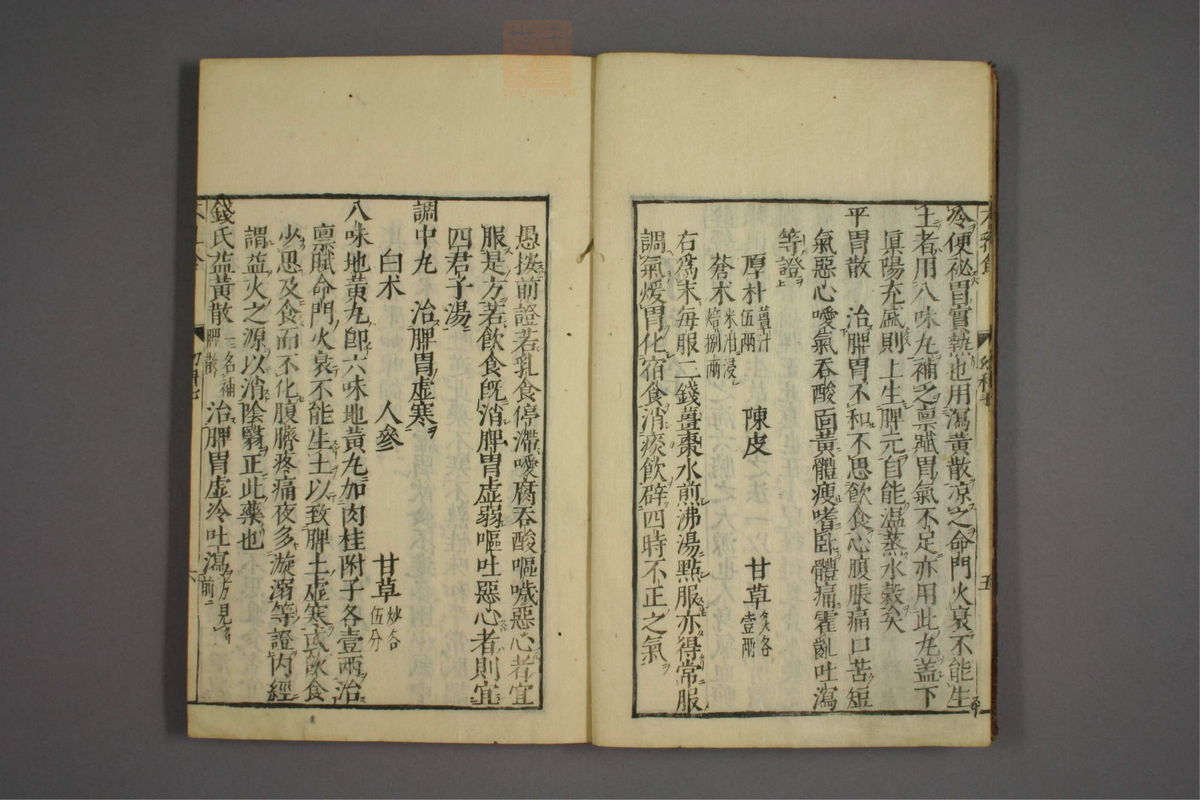 冷便秘胃實熱也用瀉黃散凉之命門火衰不能生
土者用八味丸補之禀賦胃氣不足亦用此丸盖下
眞陽充盛則上生脾元自能温蒸水穀矣
平胃散　治脾胃不和不思飲食心腹脹痛口苦短
氣惡心噯氣吞酸面黃體瘦嗜卧體痛霍亂吐瀉
等證
厚朴薑汁伍兩　陳皮　甘草炙各壹兩
蒼朮米泔浸焙捌兩
右爲末每服二錢薑棗水煎沸湯點服亦得常服
調氣煖胃化宿食消痰飲辟四時不正之氣
五
愚按前證若乳食停滯噯腐吞酸嘔噦惡心者宜
服是方若飲食既消脾胃虛弱嘔吐惡心者則宜
四君子湯
調中丸　治脾胃虛寒
白朮　人參　甘草炒各伍分
八味地黃丸卽六味地黃丸加肉桂附子各壹兩治
禀賦命門火衰不能生土以致脾土虛寒或飲食
少思及食而不化腹臍疼痛夜多漩溺等證内經
謂益火之源以消陰翳正此藥也
錢氏益黃散一名補脾散治脾胃虛冷吐瀉方見前